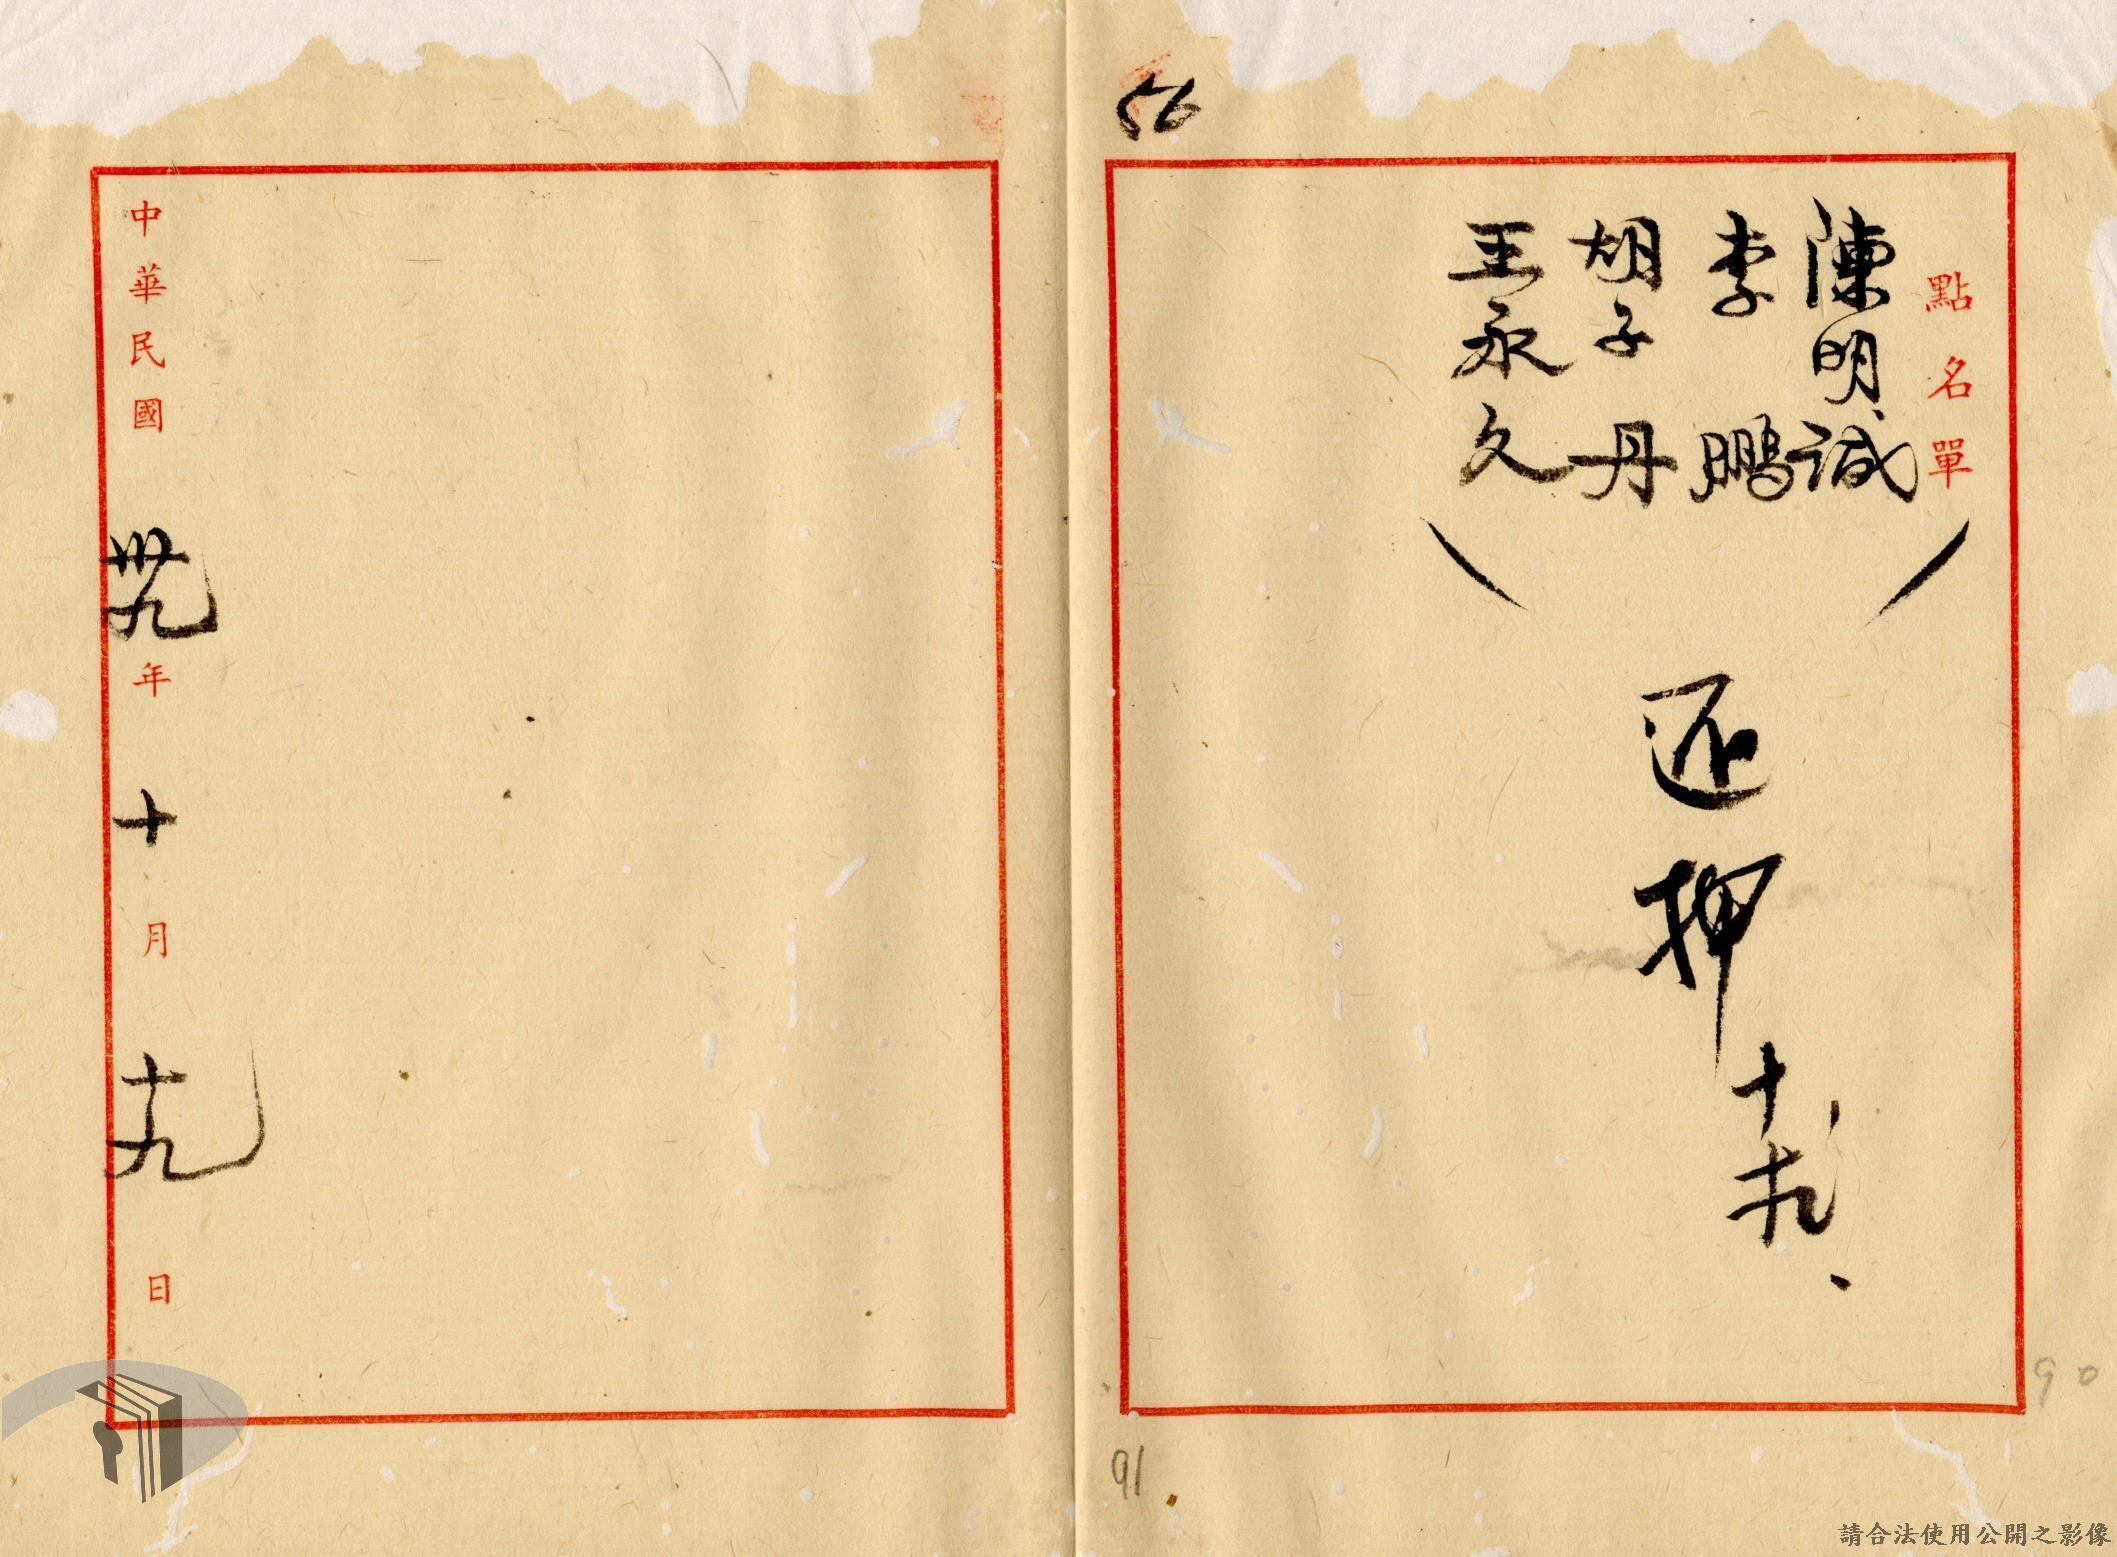 56
點名單
陳明誠
李鵬
胡子丹
王永久
还押
十、十九、
90
91
中華民國卅九年十月十九日
請合法使用公開之影像